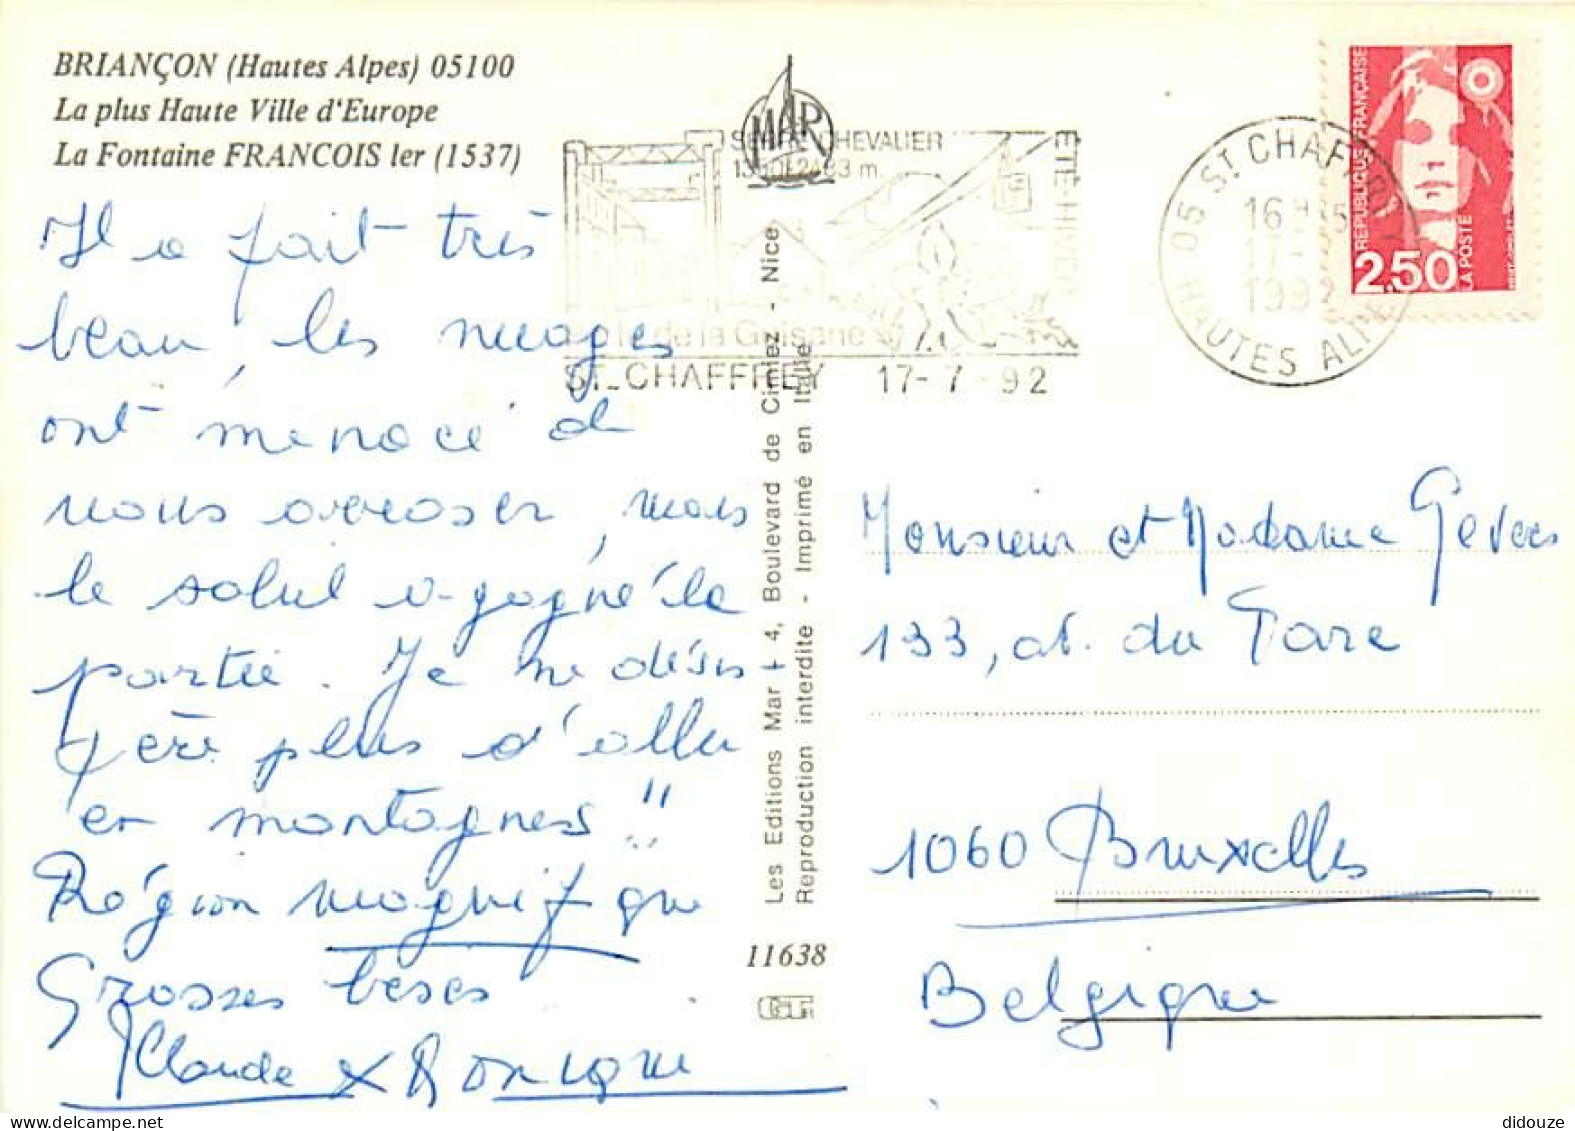 BRIANÇON (Hautes Alpes) 05100
La plus Haute Ville d'Europe
La Fontaine FRANCOIS ler (1537)
MAR
SERRE CHEVALIER
m.
ETE-HIVER
de la Guisane
ST-CHAFFREY 17-7-92
05 ST CHAFFREY
16 H
17-
1992
HAUTES ALPES
REPUBLIQUE FRANÇAISE
2,50
LA POSTE
Il a fait très
beau, les nuages
ont menacé de
nous arroser, mais
le soleil a gagné la
partie. Je me désis
père plus d'aller
en montagness !!
Région magnifique
Grosses beses
Claude & Monique
Les Editions Mar + 4, Boulevard de Cimiez - Nice
Reproduction interdite - Imprimé en Italie
11638
Monsieur et Madame Gevers
133, av. du Parc
1060 Bruxelles
Belgique
didouze @ delcampe.net